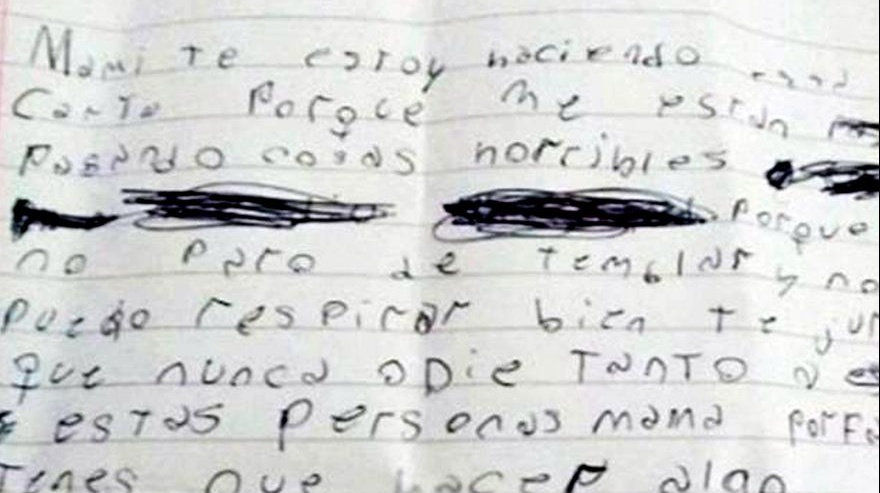 Mami te estoy haciendo esta
Carta Porque me están
Pasando cosas horribles
Porque
no Paro de temblar y no
Puedo respirar bien te jur
que nunca odie TANTO a es
estas Personas mama porfa
Tenes que hacer algo